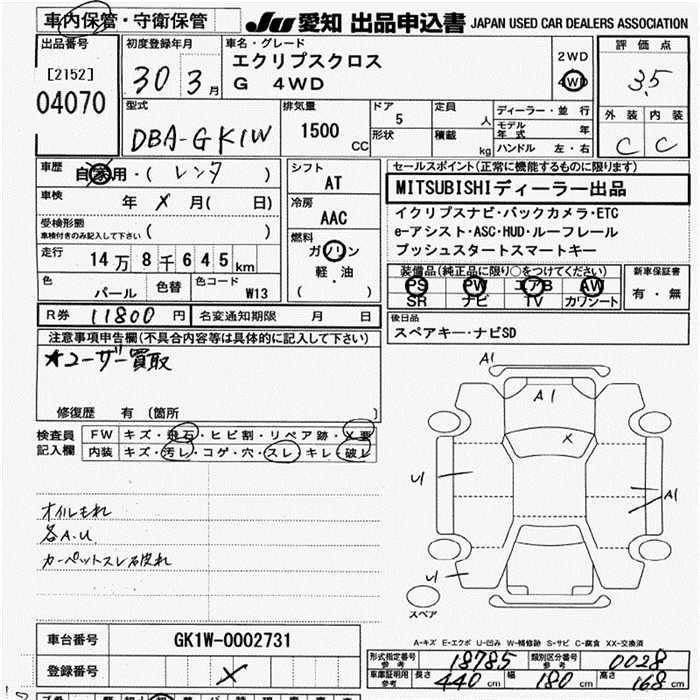 車内保管・守衛保管
JU 愛知 出品申込書 JAPAN USED CAR DEALERS ASSOCIATION
出品番号
[2152]
04070
初度登録年月
30 3月
車名・グレード
エクリプスクロス
G 4WD
2WD
4WD
評価点
3.5
外装 内装
C C
型式
DBA-GK1W
排気量
1500
CC
ドア
5
形状
定員
人
積載
kg
ディーラー・並行
モデル年式 年
ハンドル 左・右
車歴
自家用・( レンタ )
車検
年 X 月( 日)
受検形態
車検付きのみ記入して下さい ( )
走行
14万8千645km
色
パール
色替
色コード
W13
シフト
AT
冷房
AAC
燃料
ガソリン
軽・油
( )
セールスポイント(正常に機能するものに限ります)
MITSUBISHIディーラー出品
イクリプスナビ・バックカメラ・ETC
e-アシスト・ASC・HUD・ルーフレール
プッシュスタートスマートキー
装備品(純正品に限り○をつけてください)
PS PW エアB AW
SR ナビ TV カワシート
新車保証書
有・無
R券 11800円
名変通知期限 月 日
後日品
スペアキー・ナビSD
注意事項申告欄(不具合内容等は具体的に記入して下さい)
★ユーザー買取
修復歴 有 〔箇所 〕
検査員記入欄
FW キズ・飛石・ヒビ割・リペア跡・X要
内装 キズ・汚レ・コゲ・穴・スレ・キレ・破レ
オイルもれ
各A.U.
カーペットスレ破れ
A1
A1
X
U
A1
U
スペア
A-キズ E-エクボ U-凹み W-補修跡 S-サビ C-腐食 XX-交換済
車台番号
GK1W-0002731
登録番号
X
形式指定番号参考
18785
類別区分番号参考
0028
車庫証明用参考
長さ 440cm 幅 180cm 高さ 168cm